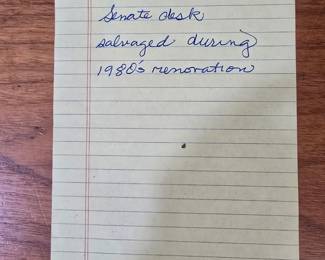 Senate desk
salvaged during
1980's renovation